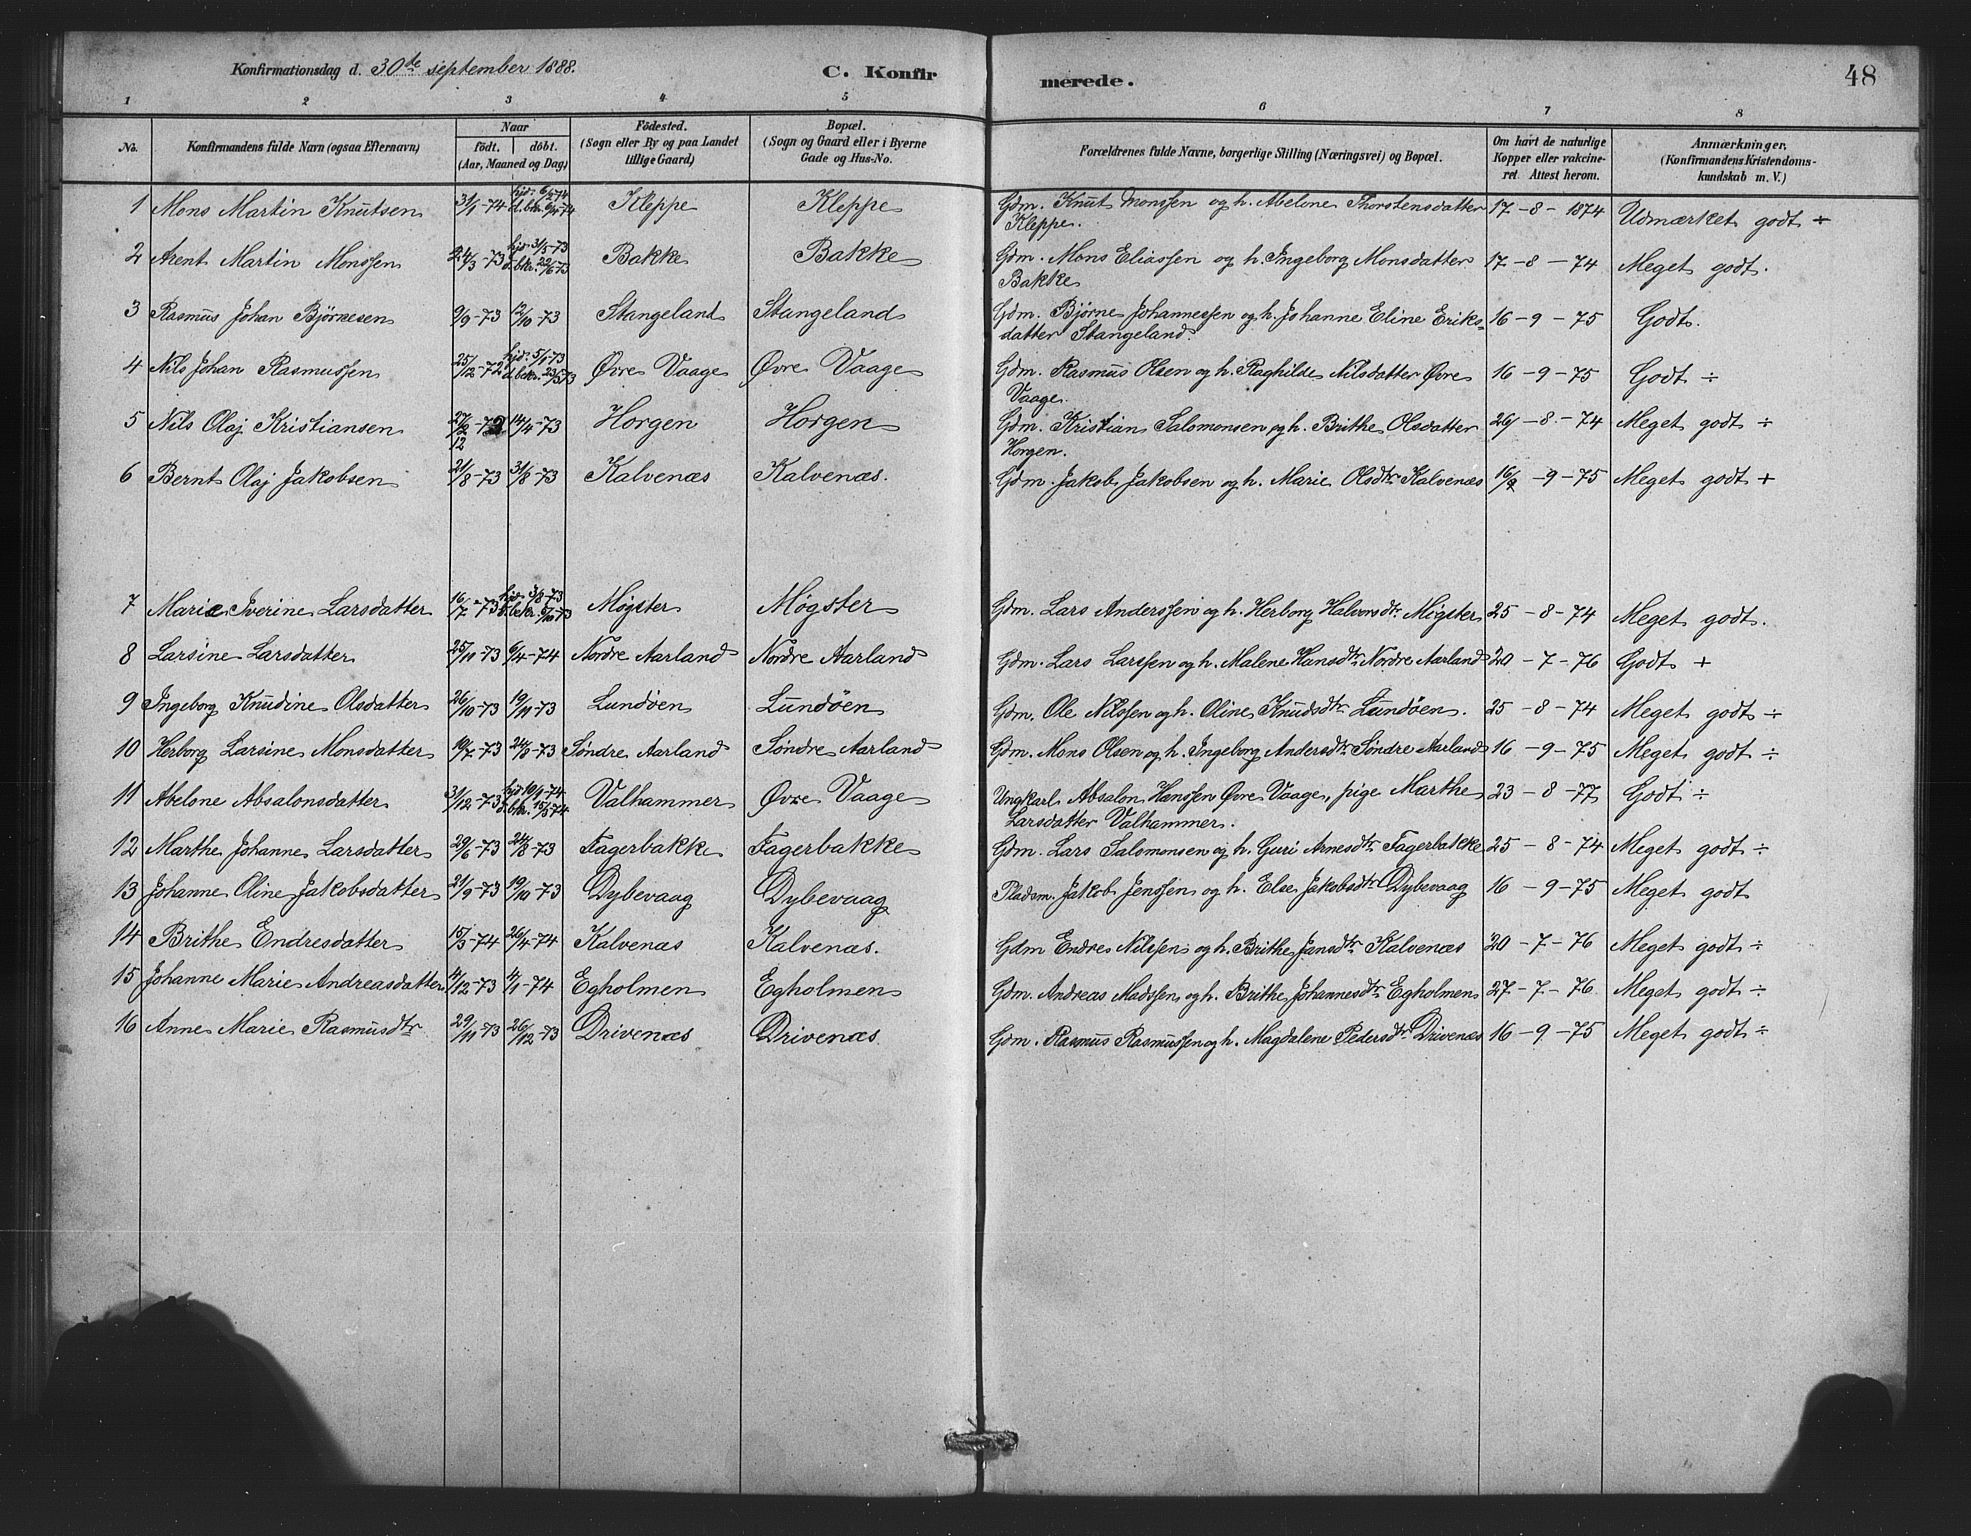 Konfirmationsdag d. 30de september 1888. C. Konfir merede. 48
1 2 3 4 5 6 7 8
No. Konfirmandens fulde Navn (ogsaa Efternavn) Naar födt. döbt. (Aar, Maaned og Dag) Födested. (Sogn eller By og paa Landet tillige Gaard) Bopæl. (Sogn og Gaard eller i Byerne Gade og Hus-No. Forældrenes fulde Navne, borgerlige Stilling (Næringsvei) og Bopæl. Om havt de naturlige Kopper eller vakcineret. Attest herom. Anmærkninger. (Konfirmandens Kristendomskundskab m. V.)
1 Mons Martin Knutsen 31/1-74 hjd. 6/2-74 d. bkr. 6/4-74 Kleppe Kleppe Gdm. Knut Monssen og h. Abelone Thorstensdatter 17-8-1874 Udmærket godt ÷
Kleppe.
2 Arent Martin Monssen 24/3-73 hjd. 3/5-73 d. bkr. 22/6-73 Bakke Bakke Gdm. Mons Eliassen og h. Ingeborg Monsdatter 17-8-74 Meget godt.
Bakke
3 Rasmus Johan Björnesen 9/9-73 12/10-73 Stangeland Stangeland Gdm. Bjørne Johannessen og h. Johanne Eline Eriks- 16-9-75 Godt.
datter Stangeland.
4 Nils Johan Rasmussen 25/12-72 hjd. 5/1-73 d. bkr. 23/5-73 Øvre Vaage Øvre Vaage Gdm. Rasmus Olsen og h. Raghilde Nilsdatter Øvre 16-9-75 Godt ÷
Vaage.
5 Nils Olaj Kristiansen 27/12-72 14/4-73 Horgen Horgen Gdm. Kristian Salomonsen og h. Brithe Olsdatter 26-8-74 Meget godt ÷
Horgen.
6 Bernt Olaj Jakobsen 21/8-73 31/8-73 Kalvenæs Kalvenæs. Gdm. Jakob Jakobsen og h. Marie Olsdtr Kalvenæs 16-9-75 Meget godt +
7 Marie Iverine Larsdatter 16/7-73 hjd. 3/8-73 d. bekr. 5/10-73 Møgster Møgster Gdm. Lars Anderssen og h. Herborg Halvorsdtr. Møgster 25-8-74 Meget godt.
8 Larsine Larsdatter 25/11-73 6/4-74 Nordre Aarland Nordre Aarland Gdm. Lars Larssen og h. Malene Hansdtr Nordre Aarland 20-7-76 Godt +
9 Ingeborg Knudine Olsdatter 26/10-73 19/11-73 Lundøen Lundøen Gdm. Ole Nilssen og h. Oline Knudsdtr Lundøen. 25-8-74 Meget godt ÷
10 Herborg Larsine Monsdatter 19/7-73 24/8-73 Søndre Aarland Søndre Aarland Gdm. Mons Olsen og h. Ingeborg Andersdtr Søndre Aarland 16-9-75 Meget godt ÷
11 Abelone Absalonsdatter 31/12-73 hjd. 10/1-74 d. bkr. 15/3-74 Valhammer Øvre Vaage Ungkarl Absalon Hanssen Øvre Vaage, pige Marthe 23-8-77 Godt ÷
Larsdatter Valhammer.
12 Marthe Johanne Larsdatter 29/6-73 24/8-73 Fagerbakke Fagerbakke Gdm. Lars Salomonsen og h. Guri Arnesdtr Fagerbakke 25-8-74 Meget godt ÷
13 Johanne Oline Jakobsdatter 21/9-73 19/10-73 Dybevaag Dybevaag Pladsm. Jakob Jenssen og h. Else Jakobsdtr Dybevaag 16-9-75 Meget godt
14 Brithe Endresdatter 15/3-74 26/4-74 Kalvenæs Kalvenæs. Gdm Endre Nilssen og h. Brithe Jansdtr Kalvenæs 20-7-76 Meget godt ÷
15 Johanne Marie Andreasdatter 4/12-73 4/1-74 Egholmen Egholmen Gdm. Andreas Madssen og h. Brithe Johannesdtr Egholmen 27-7-76. Meget godt ÷
16 Anne Marie Rasmusdtr 29/11-73 26/12-73 Drivenæs Drivenæs Gdm. Rasmus Rasmussen og h. Magdalene Pedersdtr Drivenæs 16-9-75 Meget godt ÷